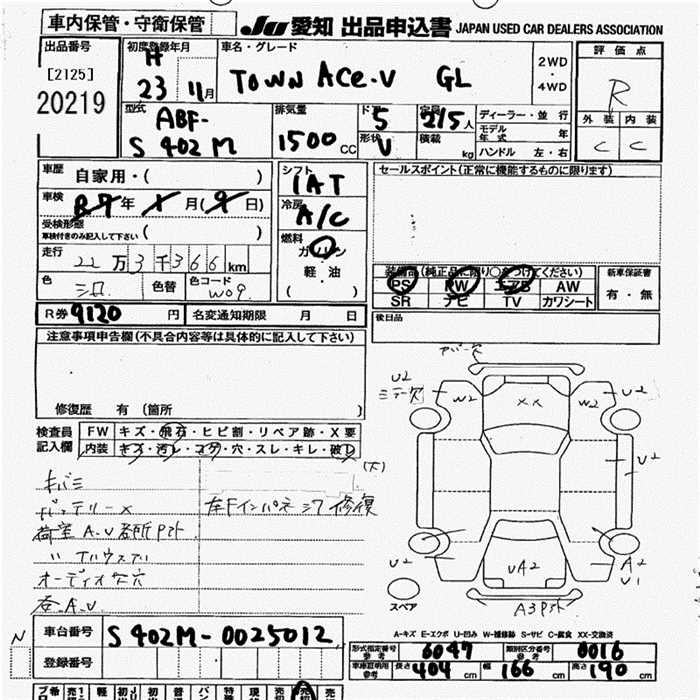 車内保管・守衛保管
JU 愛知 出品申込書 JAPAN USED CAR DEALERS ASSOCIATION
出品番号
[2125]
20219
初度登録年月
H
23 11月
車名・グレード
TOWN ACE.V GL
2WD
・
4WD
評価点
R
外装 内装
C C
型式
ABF-
S402M
排気量
1500 CC
ドア
5
形状
V
定員
2/5人
積載
kg
ディーラー・並行
モデル年式 年
ハンドル 左・右
車歴
自家用・( )
車検
R7年 X月(9日)
受検形態
車検付きのみ記入して下さい ( )
走行
22万3千366km
色
シロ
色替
色コード
W09
シフト
IAT
冷房
A/C
燃料
ガソリン
・
軽・油
( )
セールスポイント(正常に機能するものに限ります)
装備品(純正品に限り○をつけてください)
PS PW エアB AW
SR ナビ TV カワシート
新車保証書
有・無
後日品
R券 9120 円
名変通知期限 月 日
注意事項申告欄(不具合内容等は具体的に記入して下さい)
修復歴 有(箇所 )
検査員
記入欄
FW キズ・飛石・ヒビ割・リペア跡・X要
内装 キズ・汚レ・コゲ・穴・スレ・キレ・破レ
(大)
キバミ
バッテリーX
左Fインパネ シワ 修復
荷室A.U
オーディオ欠穴
A.U.
U2
W2
XX
W2
U2
U2
U2
UA2
A2
U1
A3
スペア
A-キズ E-エクボ U-凹み W-補修跡 S-サビ C-腐食 XX-交換済
N
車台番号 S402M-0025012
登録番号
形式指定番号
参考
6047
類別区分番号
参考
0016
車庫証明用
参考
長さ 404 cm 幅 166 cm 高さ 190 cm